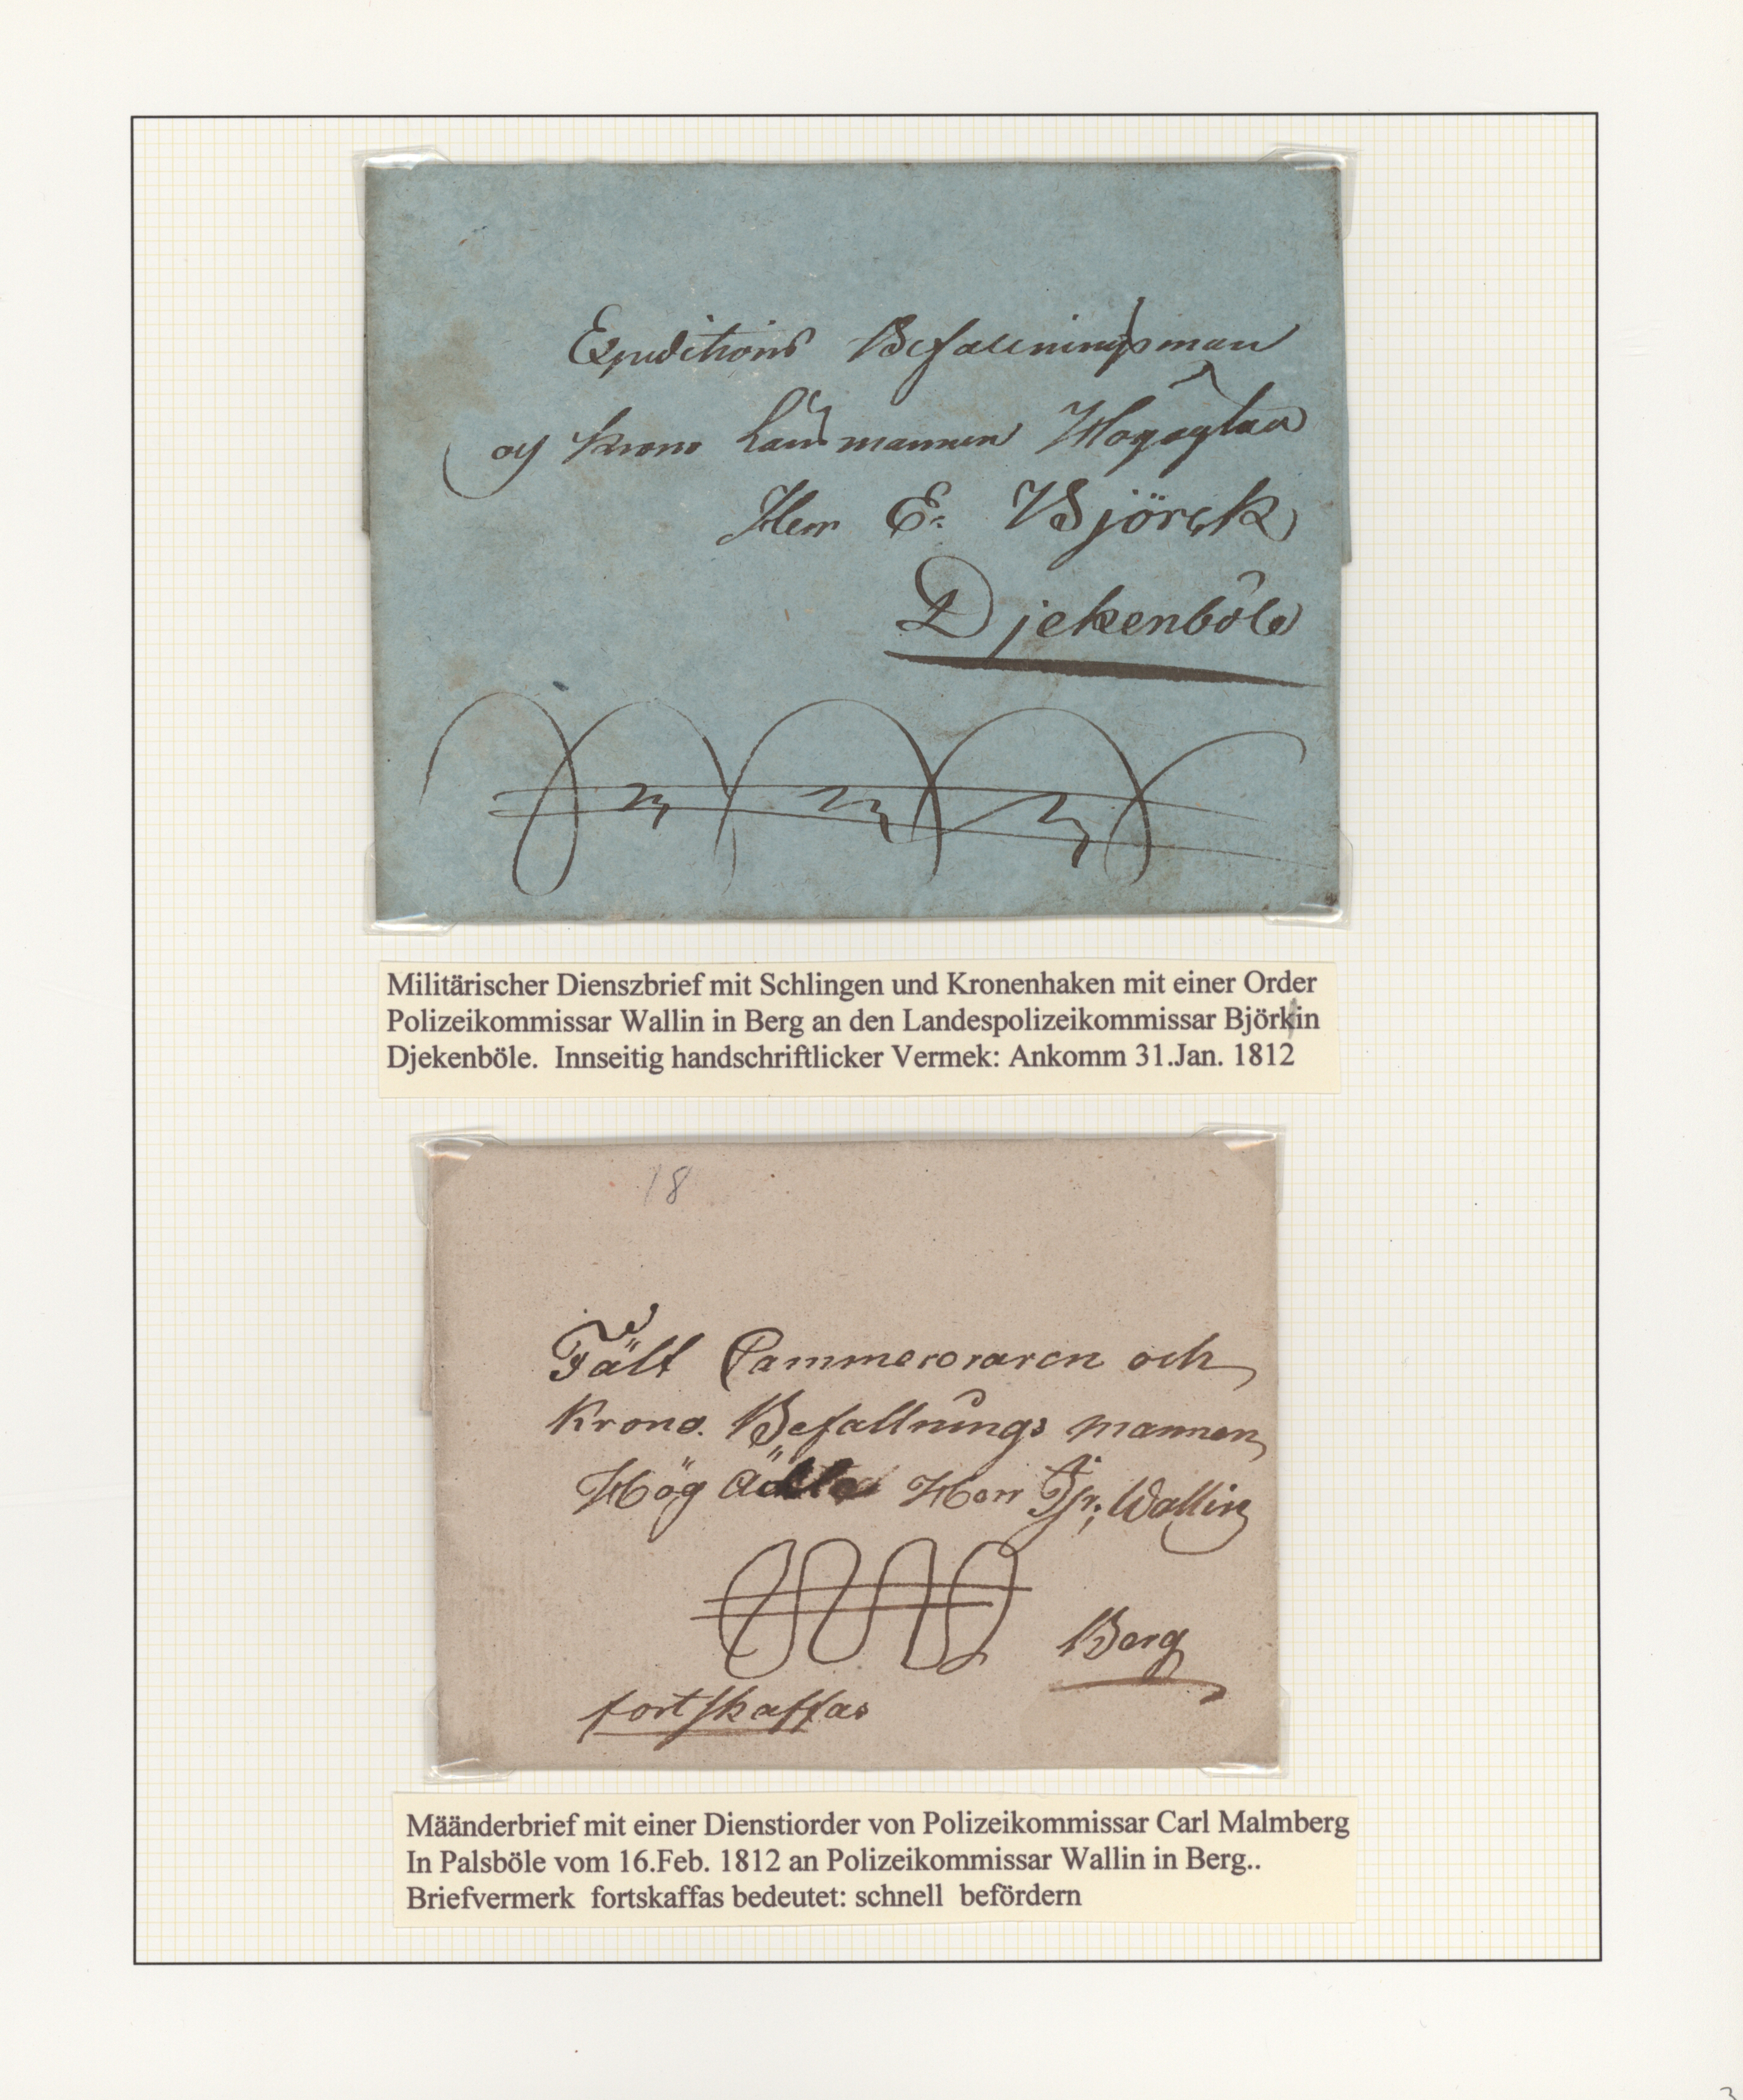 Expeditions Befallningsman
och Krono Länsmannen Högagtad
Herr E. Björck
Djekenböle
Militärischer Dienszbrief mit Schlingen und Kronenhaken mit einer Order
Polizeikommissar Wallin in Berg an den Landespolizeikommissar Björkin
Djekenböle. Innseitig handschriftlicker Vermek: Ankomm 31.Jan. 1812
18
Fält Cammereraren och
Krono. Befallnings mannen
Hög ädle Herr Wallin
Berg
fortskaffas
Määnderbrief mit einer Dienstiorder von Polizeikommissar Carl Malmberg
In Palsböle vom 16.Feb. 1812 an Polizeikommissar Wallin in Berg..
Briefvermerk fortskaffas bedeutet: schnell befördern